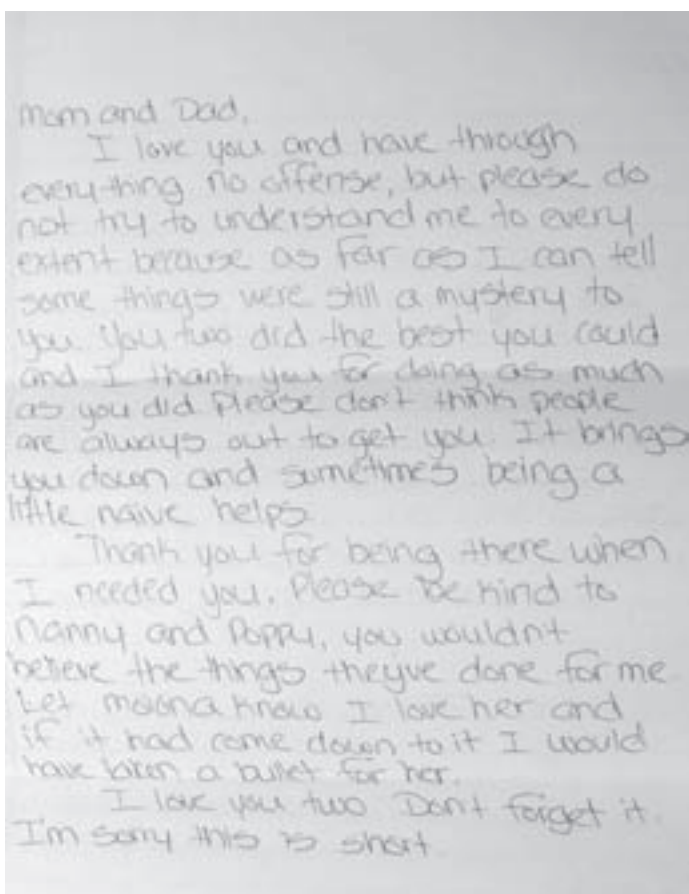 Mom and Dad,
I love you and have through
everything no offense, but please do
not try to understand me to every
extent because as far as I can tell
some things were still a mystery to
you. You two did the best you could
and I thank you for doing as much
as you did Please don't think people
are always out to get you. It brings
you down and sometimes being a
little naive helps
Thank you for being there when
I needed you. Please be kind to
Nanny and Poppy, you wouldn't
believe the things theyve done for me
Let know I love her and
if it had come down to it I would
have taken a bullet for her.
I love you two Don't forget it.
I'm sorry this is short